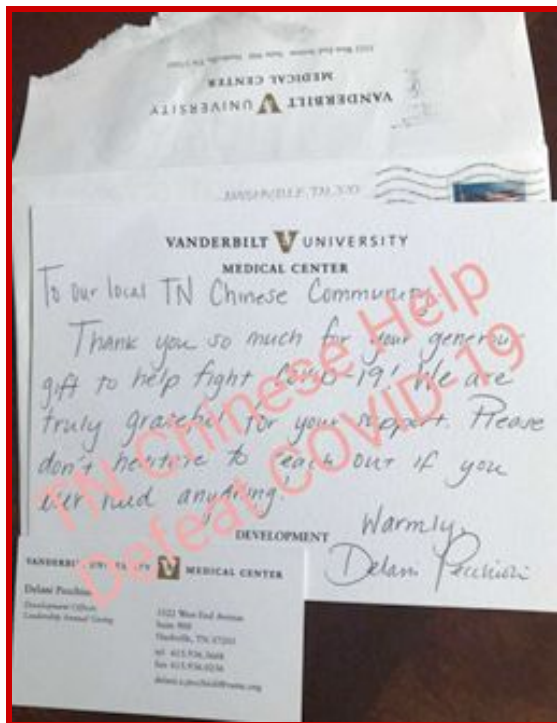 VANDERBILT UNIVERSITY
MEDICAL CENTER
NASHVILLE TN
VANDERBILT UNIVERSITY
MEDICAL CENTER
To our local TN Chinese Community,
Thank you so much for your generous
gift to help fight COVID-19! We are
truly grateful for your support. Please
don't hesitate to reach out if you
ever need anything!
Warmly,
DEVELOPMENT
TN Chinese Help
Defeat COVID-19
VANDERBILT UNIVERSITY MEDICAL CENTER
Development Officer
Leadership Annual Giving
West End Avenue
Suite
Nashville, TN
tel
fax